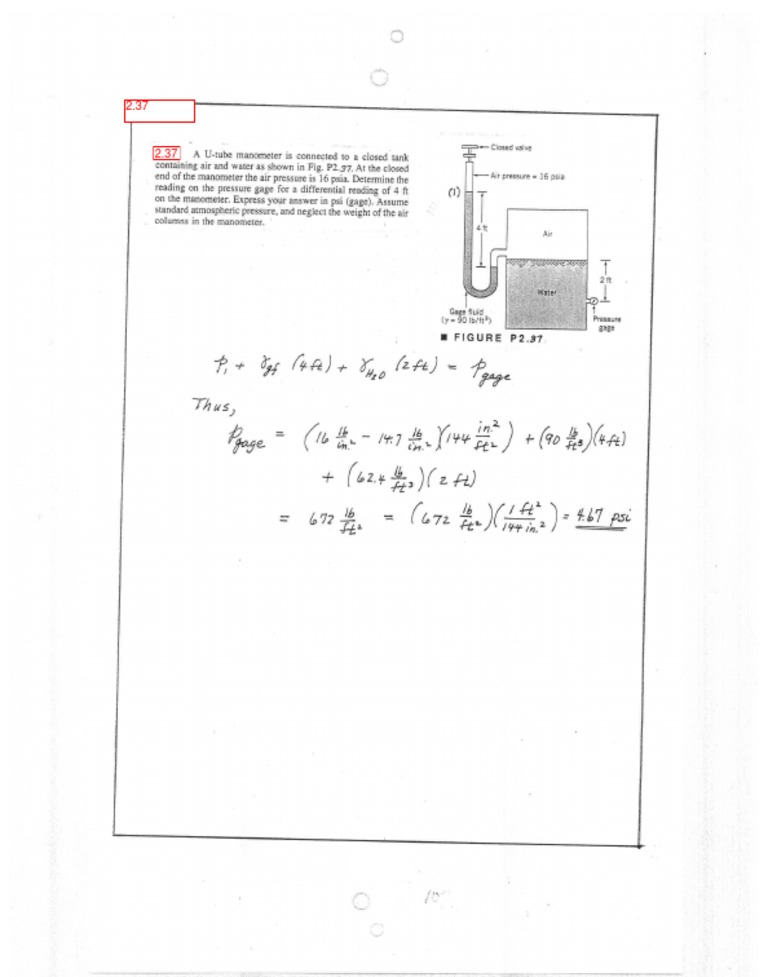 2.37
2.37 A U-tube manometer is connected to a closed tank
containing air and water as shown in Fig. P2.37. At the closed
end of the manometer the air pressure is 16 psia. Determine the
reading on the pressure gage for a differential reading of 4 ft
on the manometer. Express your answer in psi (gage). Assume
standard atmospheric pressure, and neglect the weight of the air
columns in the manometer.
Closed valve
Air pressure = 16 psia
(1)
4 ft
Air
2 ft
Water
Gage fluid
(γ = 90 lb/ft³)
Pressure
gage
■ FIGURE P2.37
p₁ + γgf (4 ft) + γH₂O (2 ft) = pgage
Thus,
pgage = (16 lb/in.² − 14.7 lb/in.²)(144 in.²/ft²) + (90 lb/ft³)(4 ft)
+ (62.4 lb/ft³)(2 ft)
= 672 lb/ft² = (672 lb/ft²)(1 ft²/144 in.²) = 4.67 psi